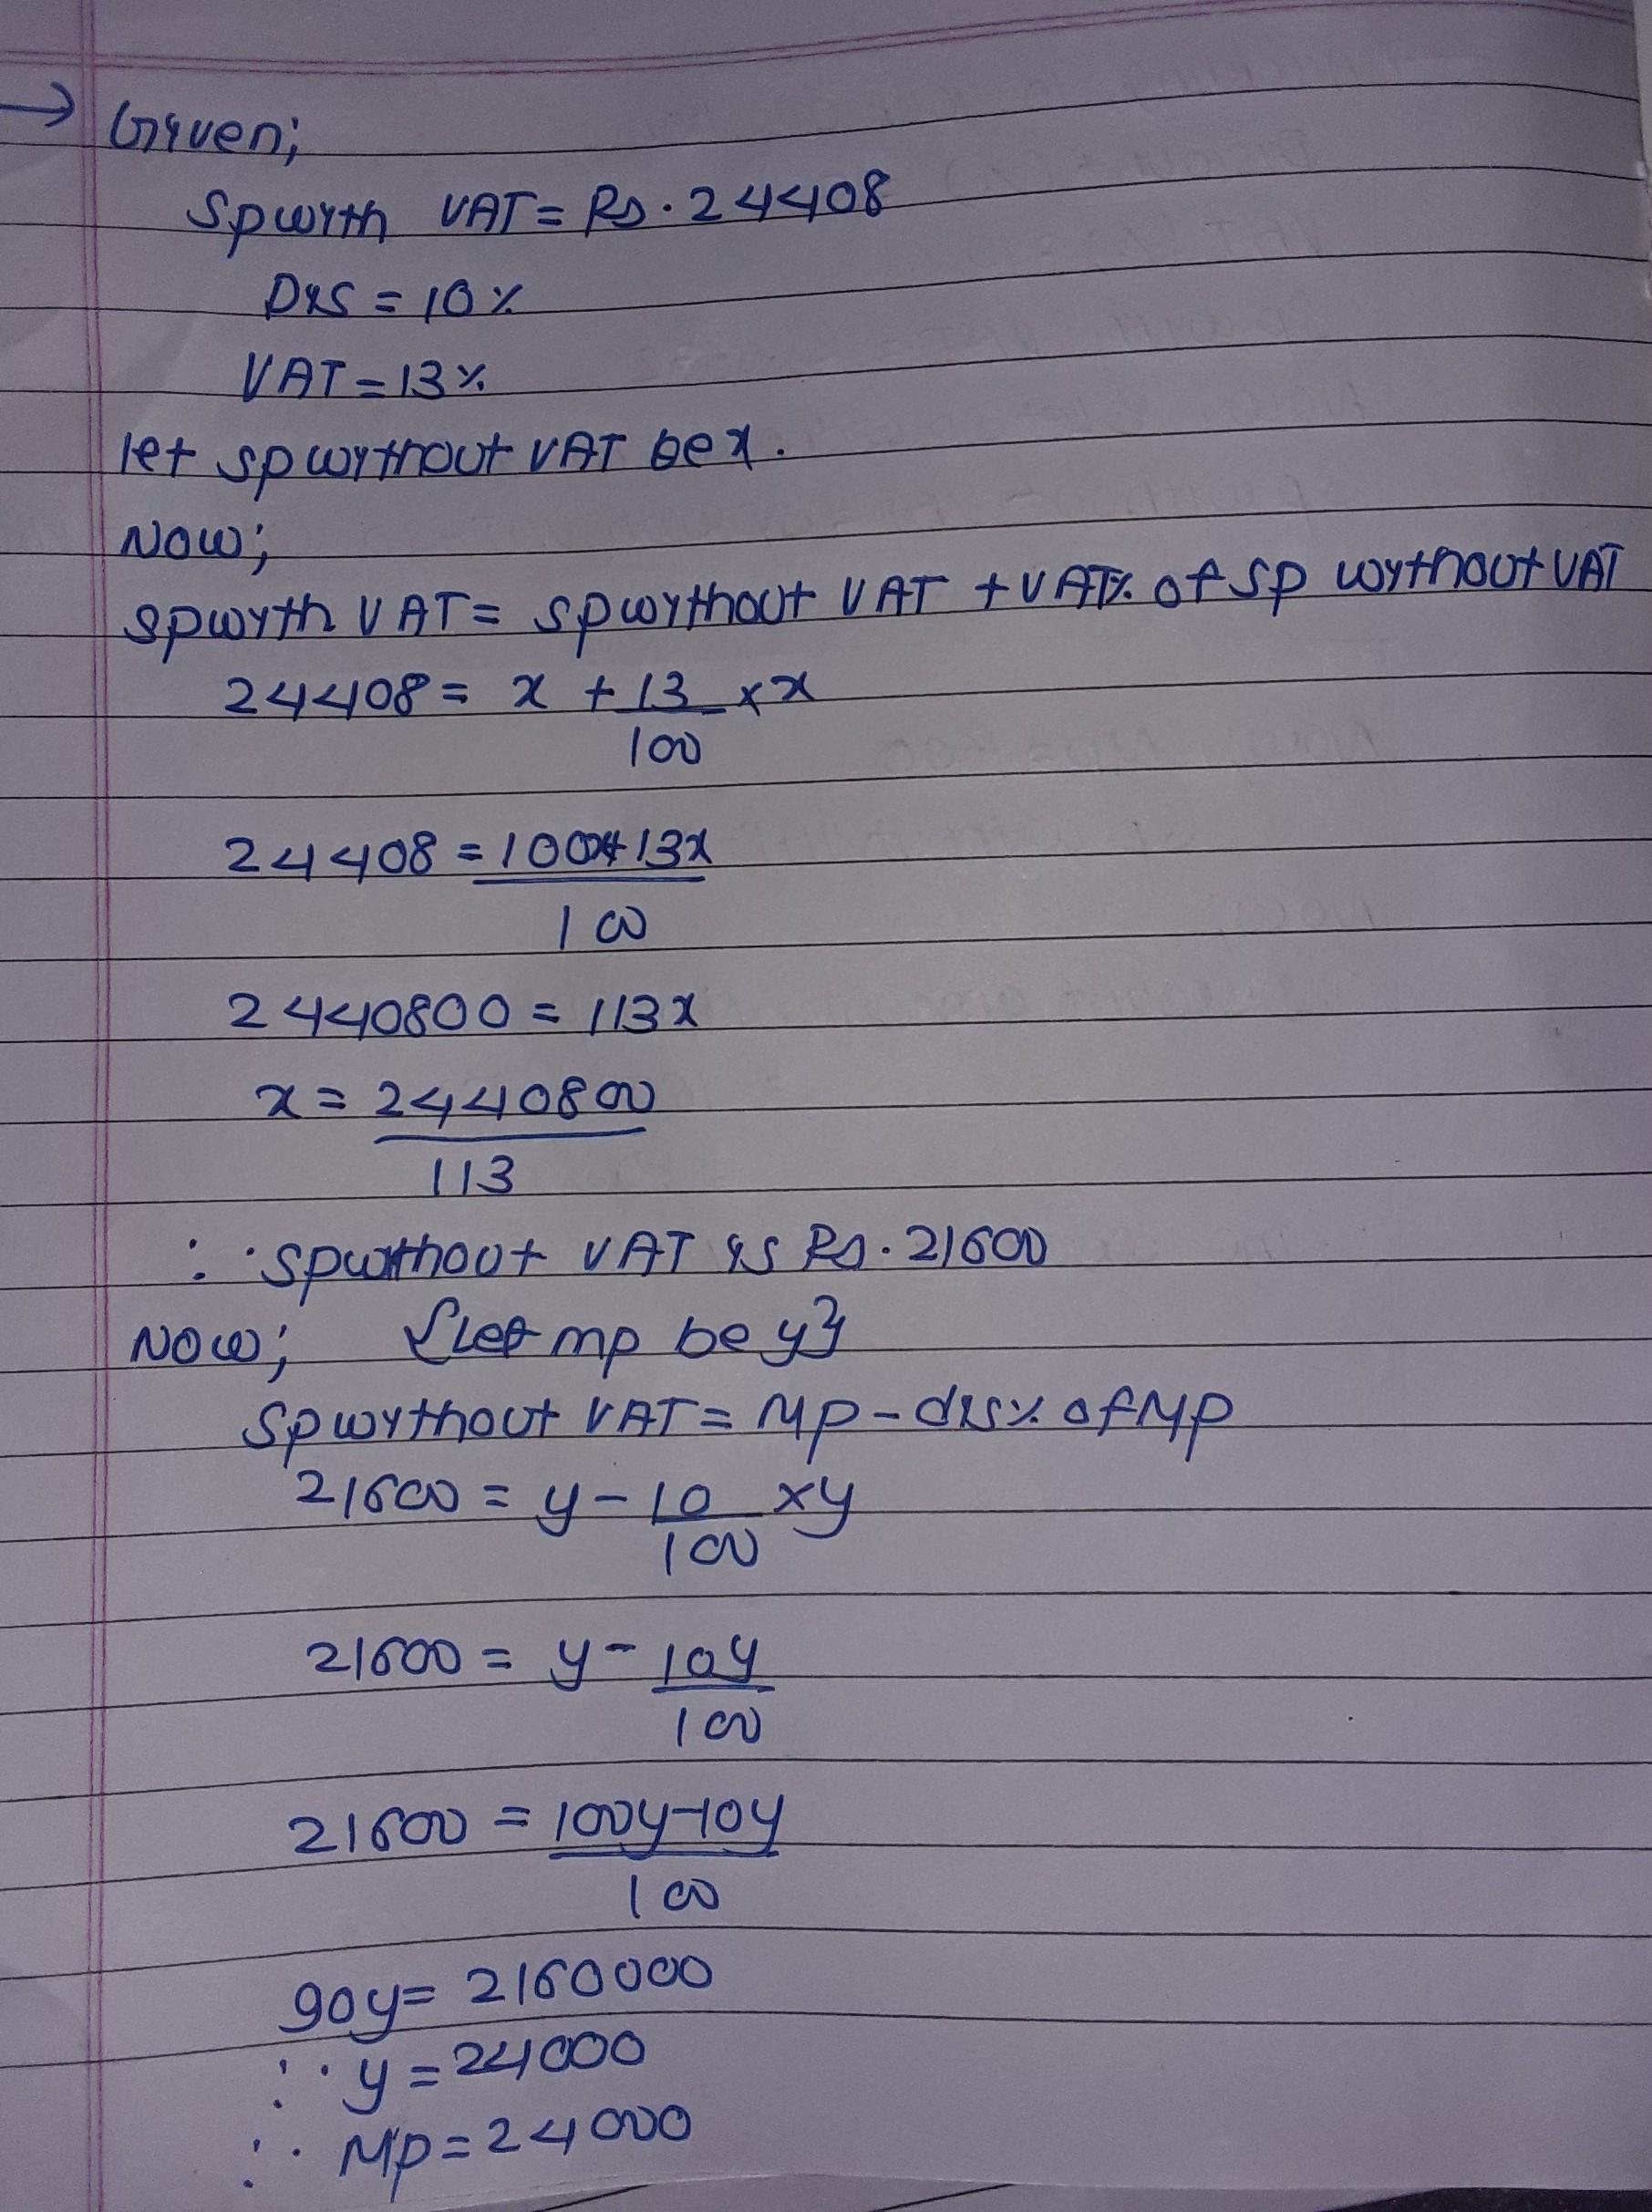 → Given;
SP with VAT = Rs. 24408
Dis = 10%
VAT = 13%
let sp without VAT be x.
Now;
SP with VAT = SP without VAT + VAT% of SP without VAT
24408 = x + 13/100 × x
24408 = 100x+13x/100
2440800 = 113x
x = 2440800/113
∴ SP without VAT is Rs. 21600
Now; {let mp be y}
SP without VAT = MP - dis% of MP
21600 = y - 10/100 × y
21600 = y - 10y/100
21600 = 100y-10y/100
90y = 2160000
∴ y = 24000
∴ MP = 24000